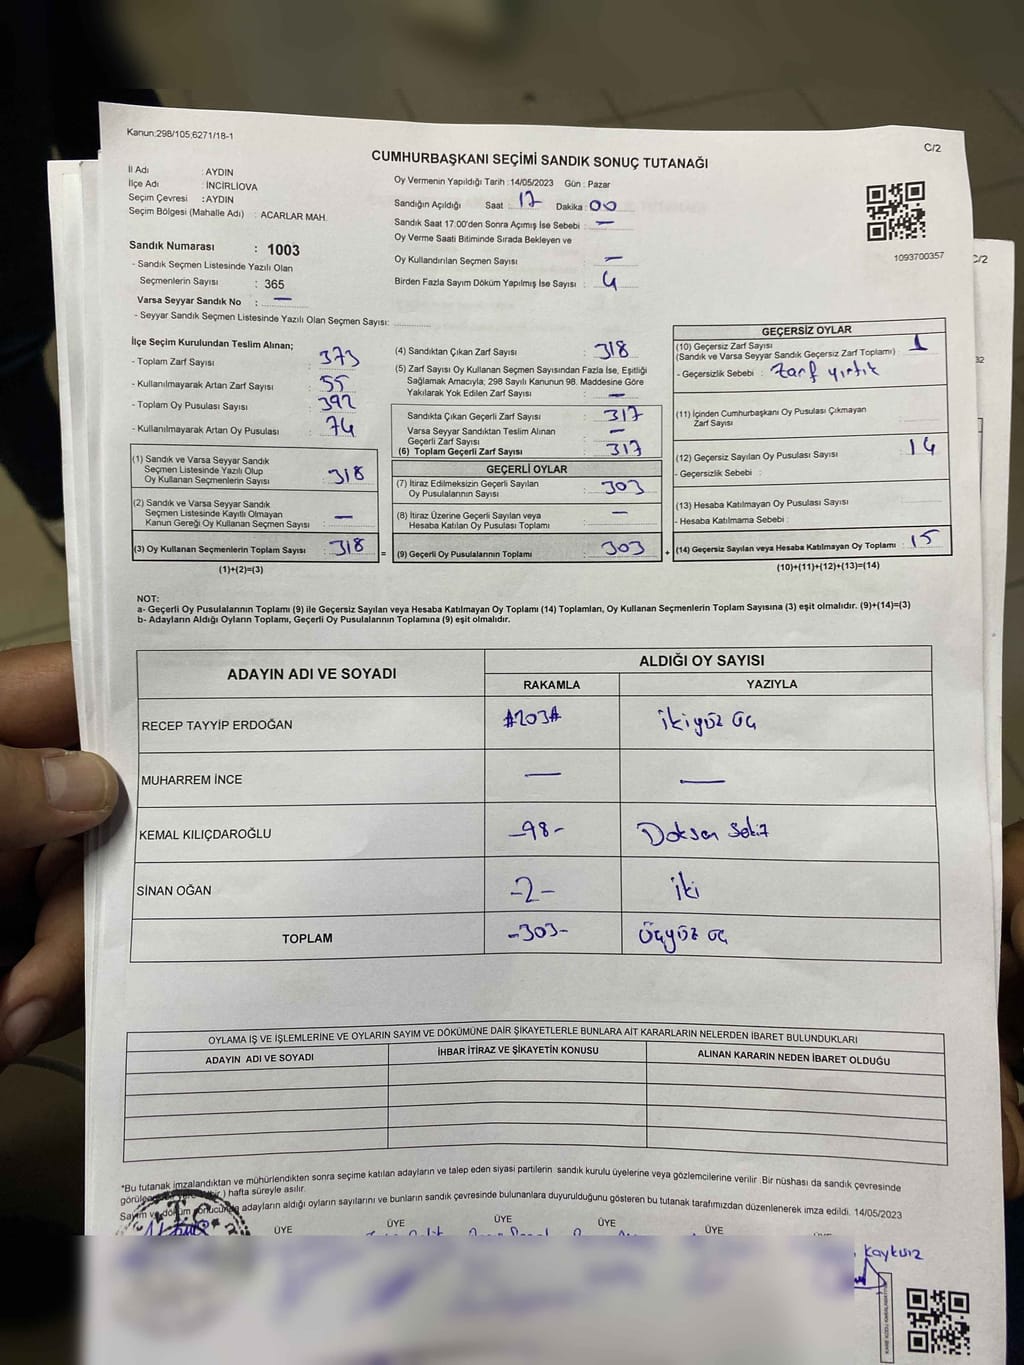 Kanun;298/105;6271/18-1
C/2
CUMHURBAŞKANI SEÇİMİ SANDIK SONUÇ TUTANAĞI
İl Adı : AYDIN
İlçe Adı : İNCİRLİOVA
Seçim Çevresi : AYDIN
Seçim Bölgesi (Mahalle Adı) : ACARLAR MAH.
Sandık Numarası : 1003
- Sandık Seçmen Listesinde Yazılı Olan
Seçmenlerin Sayısı : 365
Varsa Seyyar Sandık No : —
- Seyyar Sandık Seçmen Listesinde Yazılı Olan Seçmen Sayısı:
Oy Vermenin Yapıldığı Tarih : 14/05/2023 Gün : Pazar
Sandığın Açıldığı Saat : 17 Dakika : 00
Sandık Saat 17:00'den Sonra Açımış İse Sebebi : —
Oy Verme Saati Bitiminde Sırada Bekleyen ve
Oy Kullandırılan Seçmen Sayısı : —
Birden Fazla Sayım Döküm Yapılmış İse Sayısı : 4
1093700357
C/2
32
İlçe Seçim Kurulundan Teslim Alınan;
- Toplam Zarf Sayısı : 373
- Kullanılmayarak Artan Zarf Sayısı : 55
- Toplam Oy Pusulası Sayısı : 392
- Kullanılmayarak Artan Oy Pusulası : 74
(1) Sandık ve Varsa Seyyar Sandık
Seçmen Listesinde Yazılı Olup
Oy Kullanan Seçmenlerin Sayısı : 318
(2) Sandık ve Varsa Seyyar Sandık
Seçmen Listesinde Kayıtlı Olmayan
Kanun Gereği Oy Kullanan Seçmen Sayısı : —
(3) Oy Kullanan Seçmenlerin Toplam Sayısı : 318
(1)+(2)=(3)
(4) Sandıktan Çıkan Zarf Sayısı : 318
(5) Zarf Sayısı Oy Kullanan Seçmen Sayısından Fazla İse, Eşitliği
Sağlamak Amacıyla; 298 Sayılı Kanunun 98. Maddesine Göre
Yakılarak Yok Edilen Zarf Sayısı : —
Sandıkta Çıkan Geçerli Zarf Sayısı : 317
Varsa Seyyar Sandıktan Teslim Alınan
Geçerli Zarf Sayısı : —
(6) Toplam Geçerli Zarf Sayısı : 317
GEÇERLİ OYLAR
(7) İtiraz Edilmeksizin Geçerli Sayılan
Oy Pusulalarının Sayısı : 303
(8) İtiraz Üzerine Geçerli Sayılan veya
Hesaba Katılan Oy Pusulası Toplamı : —
= (9) Geçerli Oy Pusulalarının Toplamı : 303
GEÇERSİZ OYLAR
(10) Geçersiz Zarf Sayısı
(Sandık ve Varsa Seyyar Sandık Geçersiz Zarf Toplamı) : 1
- Geçersizlik Sebebi : Zarf yırtık
(11) İçinden Cumhurbaşkanı Oy Pusulası Çıkmayan
Zarf Sayısı
(12) Geçersiz Sayılan Oy Pusulası Sayısı : 14
- Geçersizlik Sebebi :
(13) Hesaba Katılmayan Oy Pusulası Sayısı :
- Hesaba Katılmama Sebebi :
+ (14) Geçersiz Sayılan veya Hesaba Katılmayan Oy Toplamı : 15
(10)+(11)+(12)+(13)=(14)
NOT:
a- Geçerli Oy Pusulalarının Toplamı (9) ile Geçersiz Sayılan veya Hesaba Katılmayan Oy Toplamı (14) Toplamları, Oy Kullanan Seçmenlerin Toplam Sayısına (3) eşit olmalıdır. (9)+(14)=(3)
b- Adayların Aldığı Oyların Toplamı, Geçerli Oy Pusulalarının Toplamına (9) eşit olmalıdır.
ADAYIN ADI VE SOYADI
ALDIĞI OY SAYISI
RAKAMLA YAZIYLA
RECEP TAYYİP ERDOĞAN #203# ikiyüz üç
MUHARREM İNCE — —
KEMAL KILIÇDAROĞLU -98- Doksan Sekiz
SİNAN OĞAN -2- iki
TOPLAM -303- üçyüz üç
OYLAMA İŞ VE İŞLEMLERİNE VE OYLARIN SAYIM VE DÖKÜMÜNE DAİR ŞİKAYETLERLE BUNLARA AİT KARARLARIN NELERDEN İBARET BULUNDUKLARI
ADAYIN ADI VE SOYADI İHBAR İTİRAZ VE ŞİKAYETİN KONUSU ALINAN KARARIN NEDEN İBARET OLDUĞU
*Bu tutanak imzalandıktan ve mühürlendikten sonra seçime katılan adayların ve talep eden siyasi partilerin sandık kurulu üyelerine veya gözlemcilerine verilir. Bir nüshası da sandık çevresinde
hafta süreyle asılır.
Sayım ve döküm sonucunda adayların aldığı oyların sayılarını ve bunların sandık çevresinde bulunanlara duyurulduğunu gösteren bu tutanak tarafımızdan düzenlenerek imza edildi. 14/05/2023
ÜYE ÜYE ÜYE ÜYE ÜYE